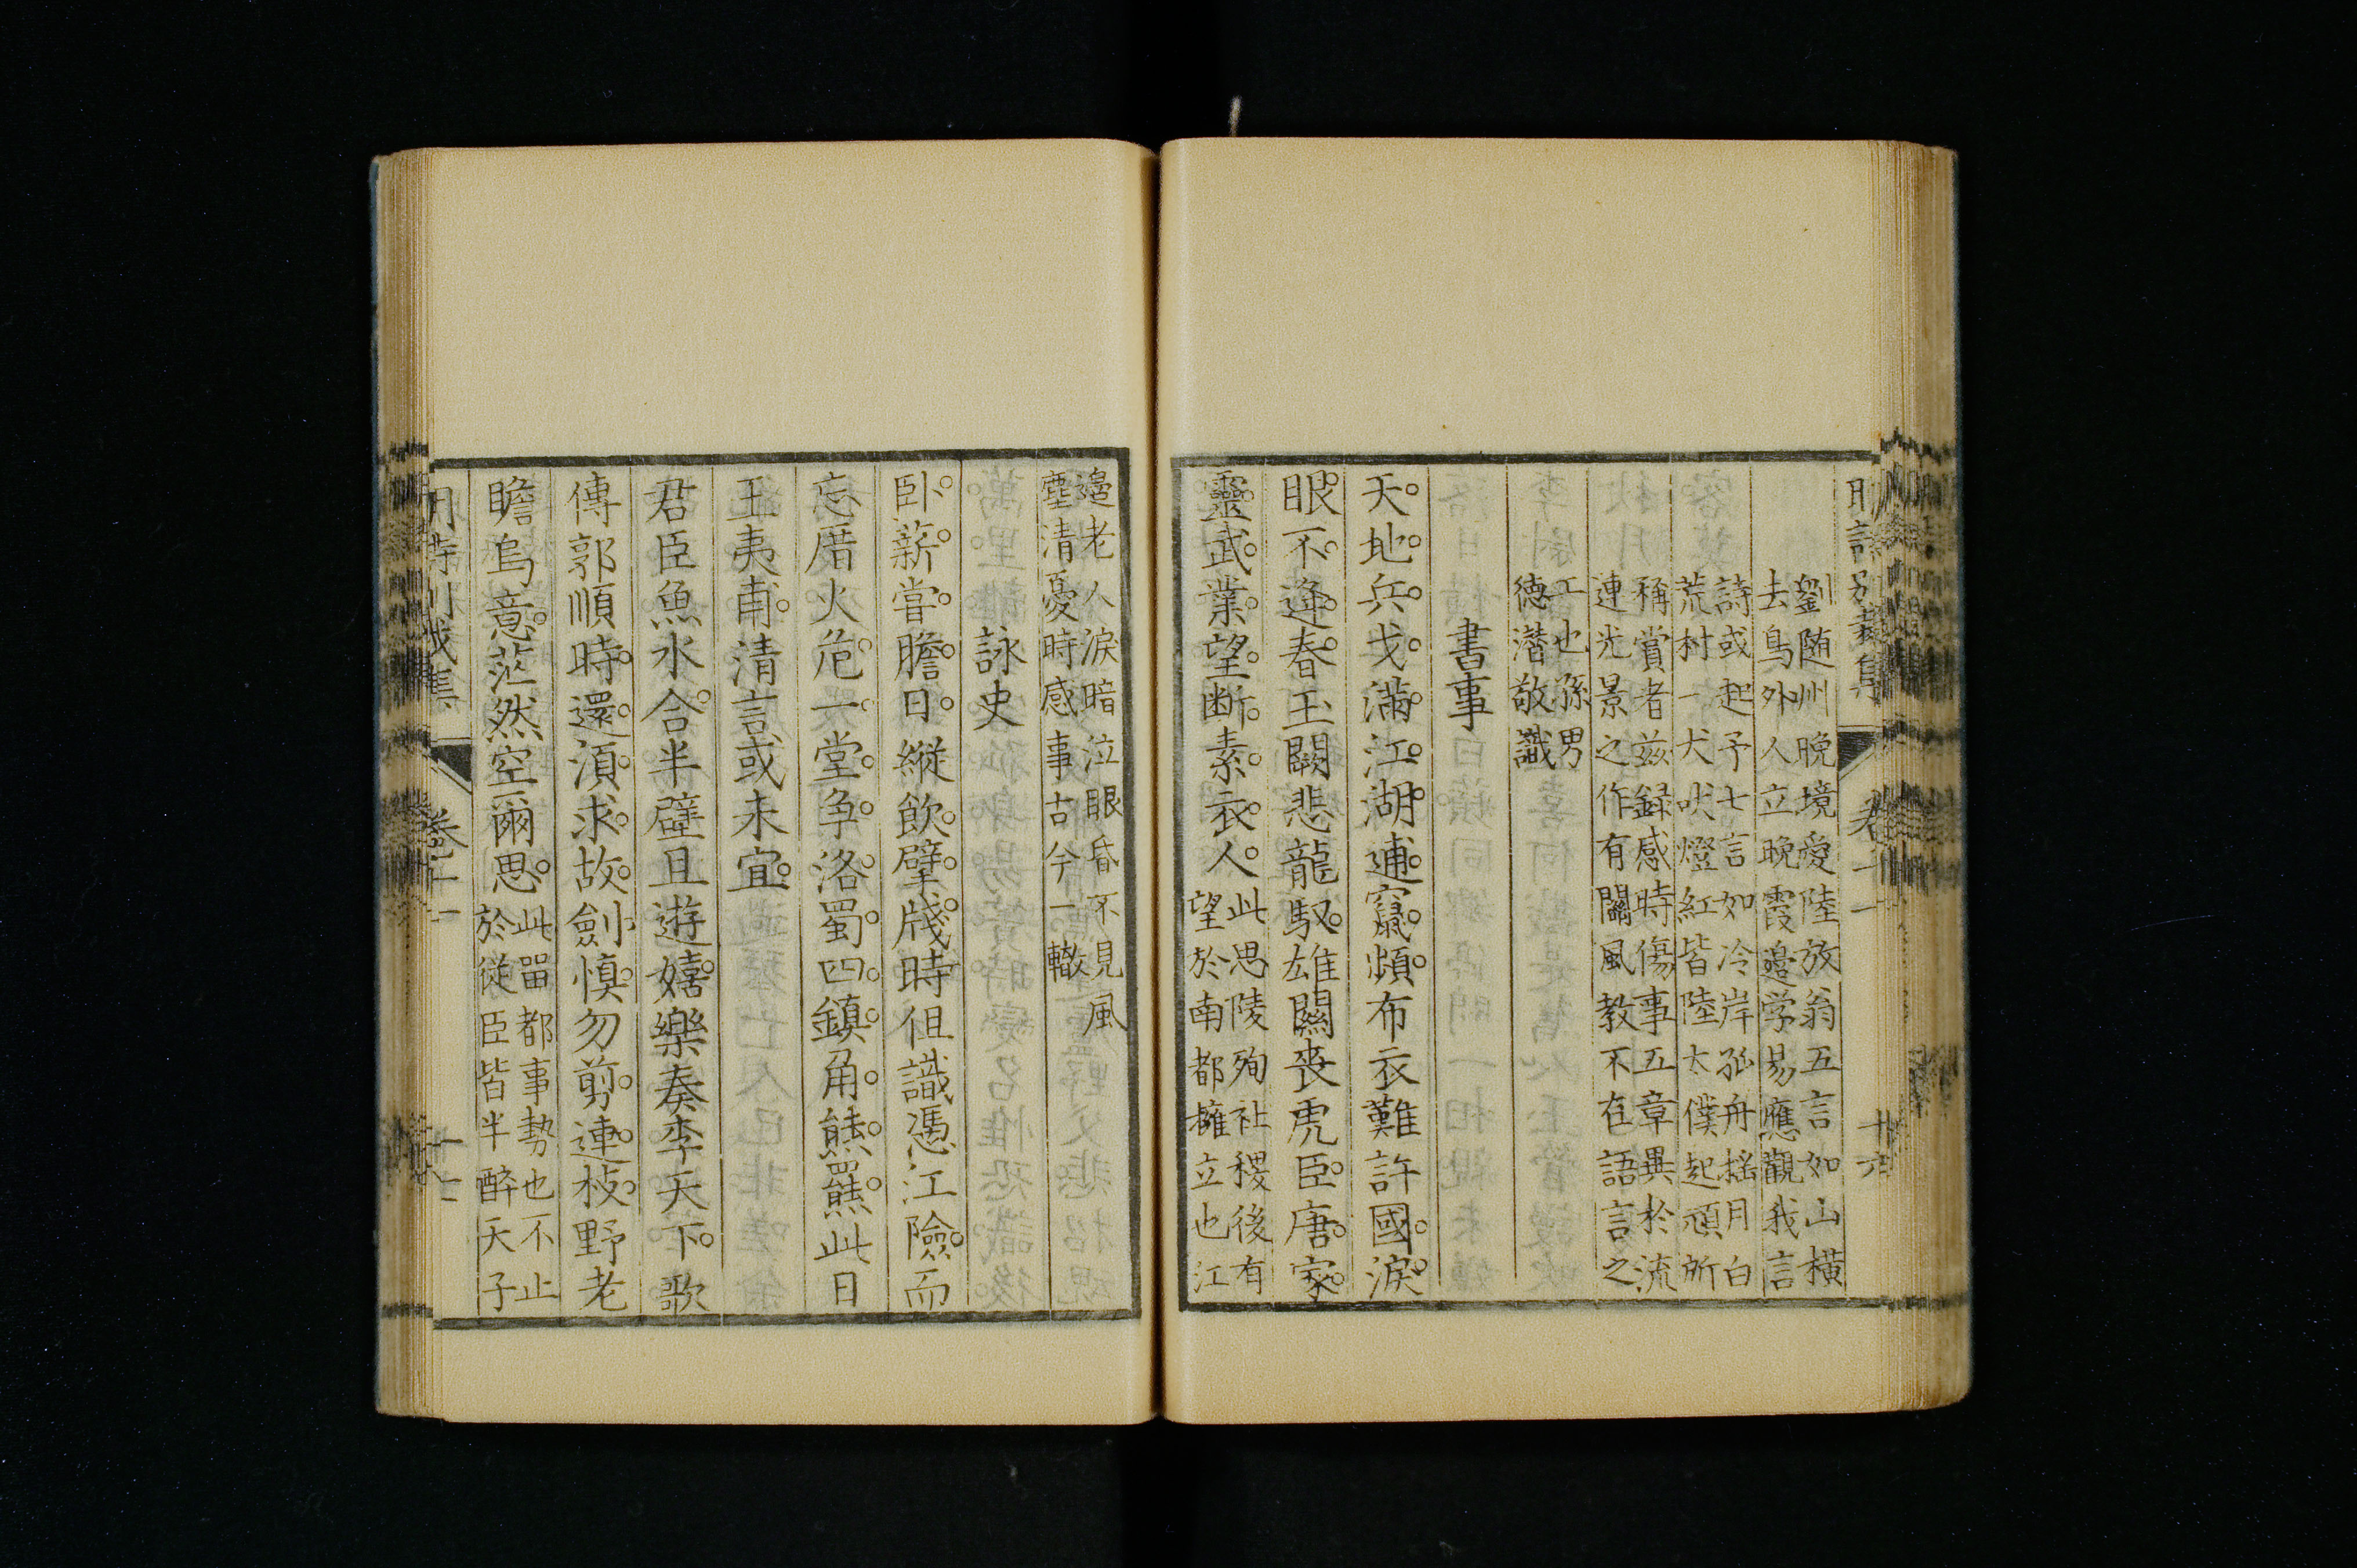 劉随州晚境愛陸放翁五言如山橫
去鳥外人立晚霞邉学易應觀我言
詩或起予七言如冷岸孤舟摇月白
荒村一犬吠燈紅皆陸太僕起頑所
稱賞者兹録感時傷事五章異於流
連光景之作有關風教不在語言之
工也孫男
德潛敬識
書事
天地兵戈滿江湖逋竄頻布衣難許國淚
眼不逢春玉闕悲龍馭雄關喪虎臣唐家
靈武業望斷素衣人
此思陵殉社稷後有
望於南都擁立也江
邉老人淚暗泣眼昏不見風
塵清憂時感事古今一轍
詠史
卧薪嘗膽日縱飲擘牋時但識憑江險而
忘厝火危一堂争洛蜀四鎮角熊羆此日
王夷甫清言或未宜
君臣魚水合半壁且遊嬉樂奏李天下歌
傳郭順時還湏求故劍慎勿剪連枝野老
瞻烏意茫然空爾思
此畱都事勢也不止
於從臣皆半醉天子